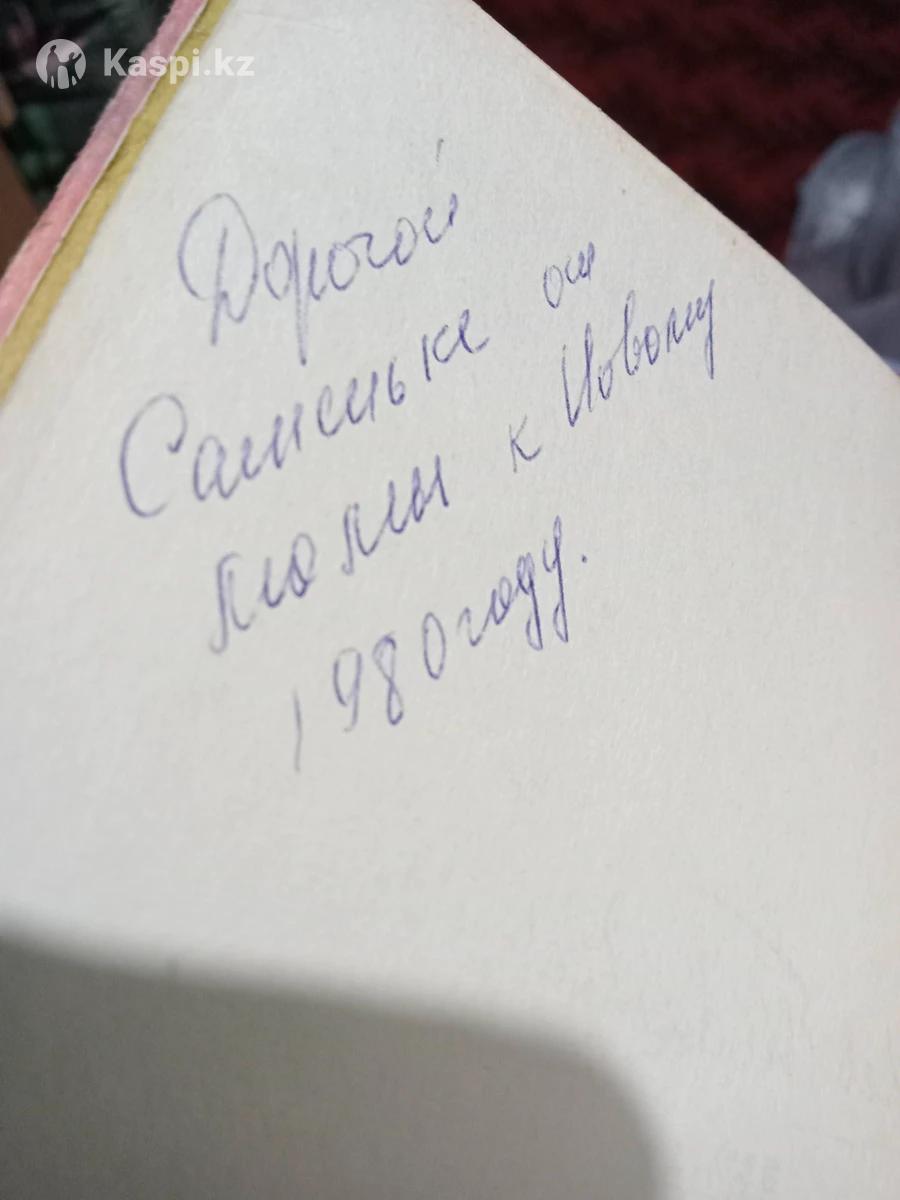 Kaspi.kz
Дорогой
Сашеньке от
мамы к Новому
1980 году.